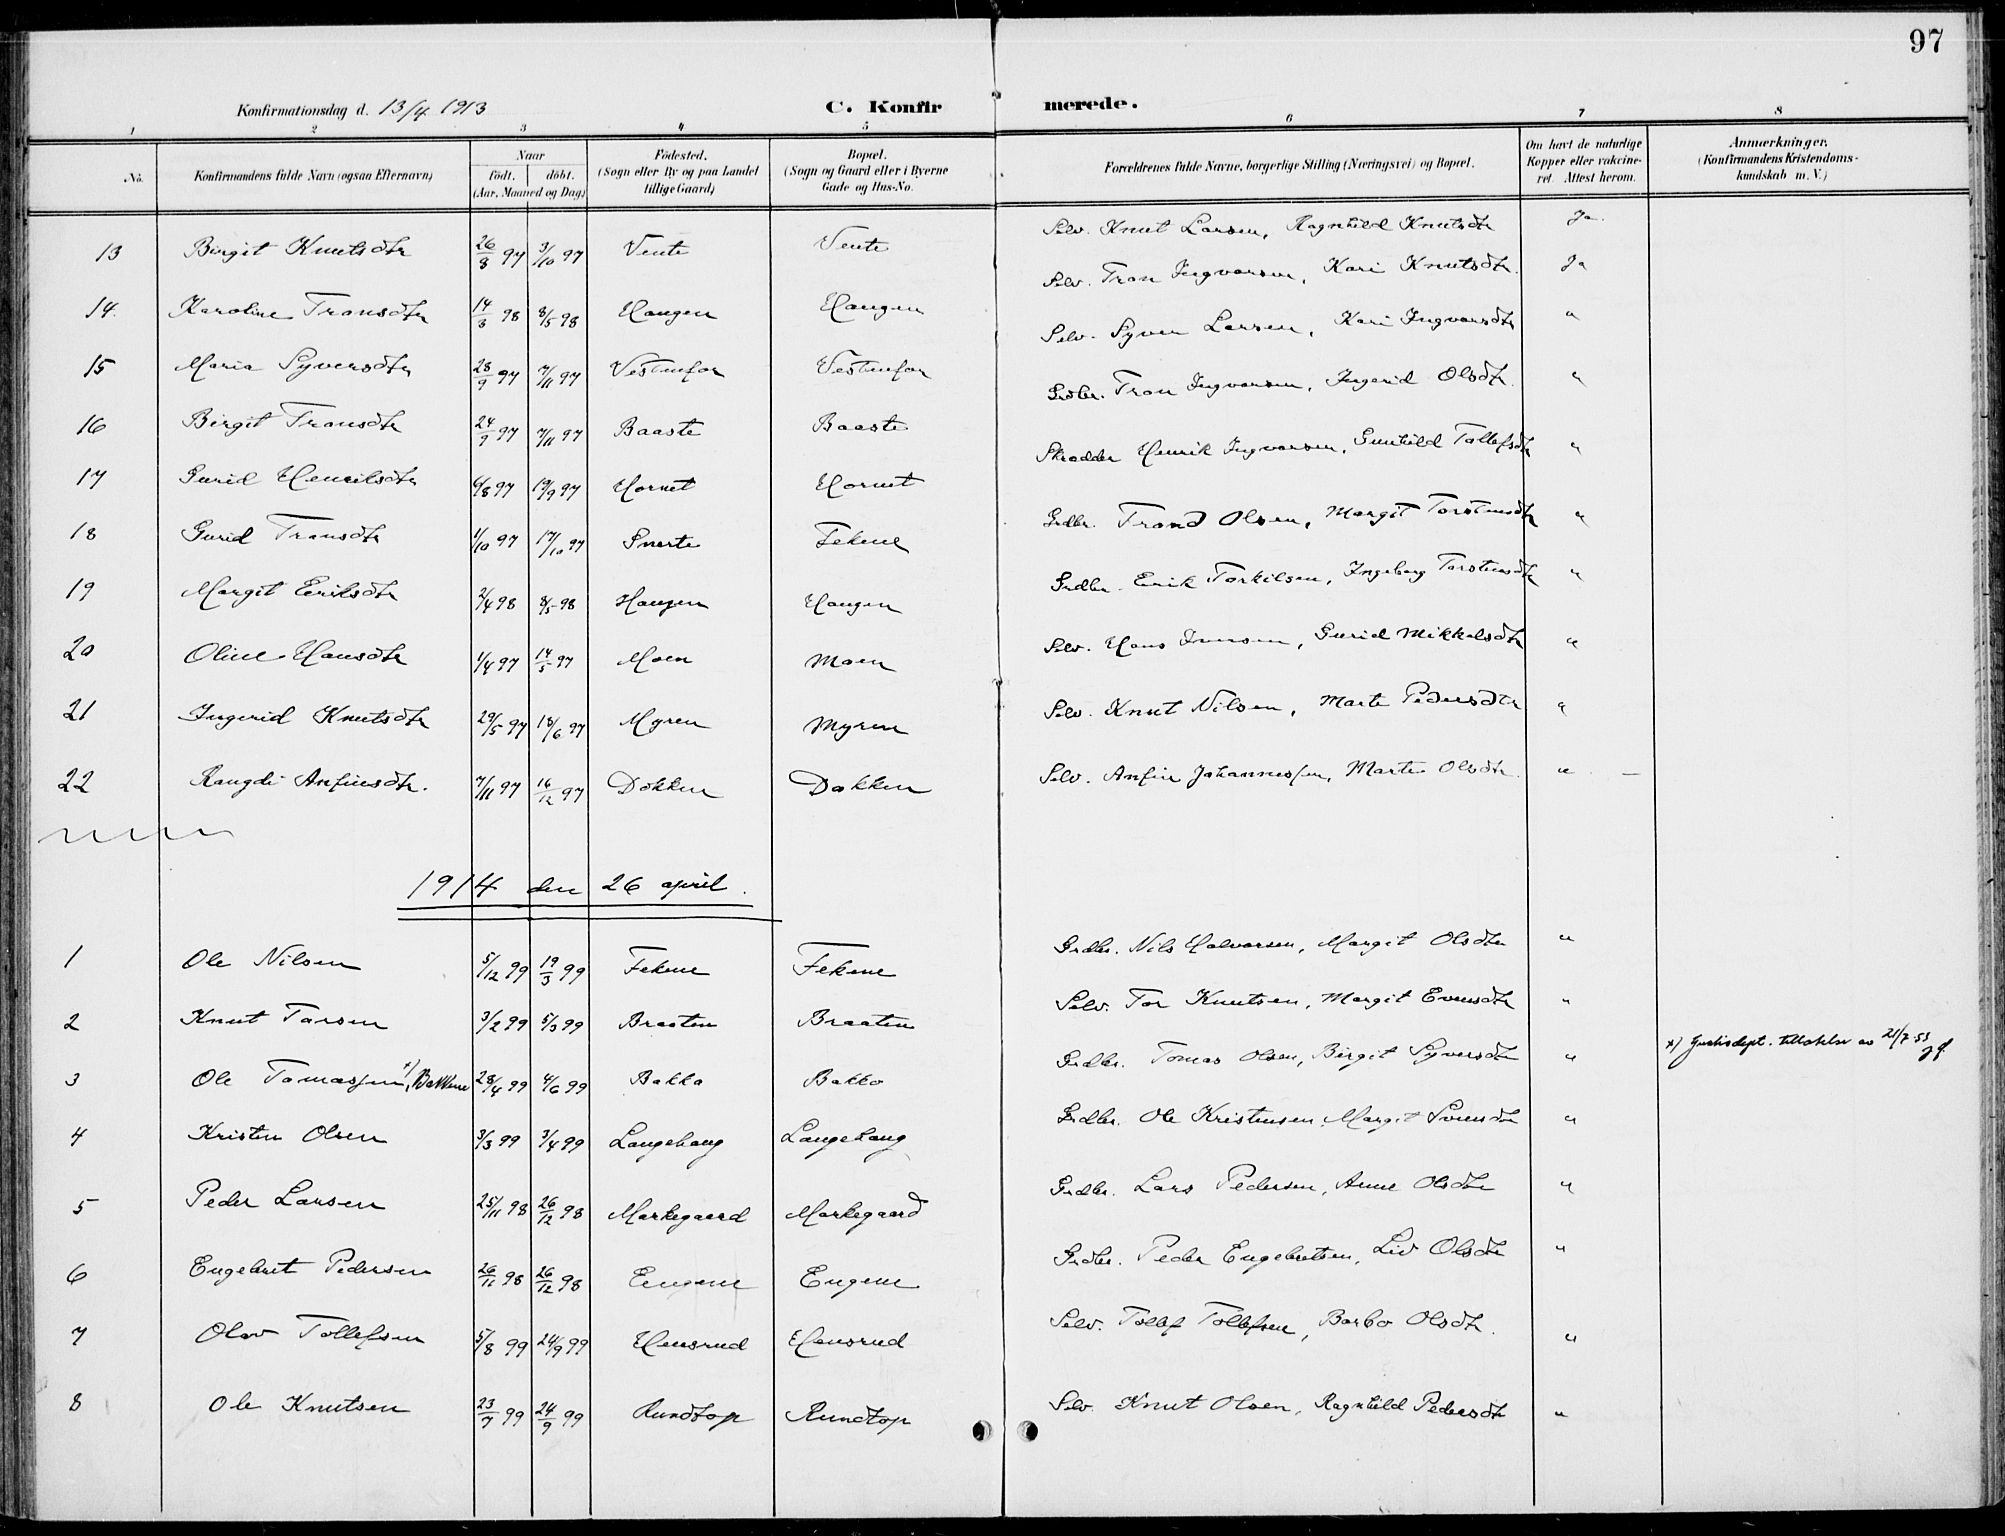 97
Konfirmationsdag d. 13/4 1913 C. Konfirmerede.
1 2 3 4 5 6 7 8
No. Konfirmandens fulde Navn (ogsaa Efternavn) Naar født. døbt. (Aar, Maaned og Dag) Fødested. (Sogn eller By og paa Landet tillige Gaard) Bopæl. (Sogn og Gaard eller i Byerne Gade og Hus-No. Forældrenes fulde Navne, borgerlige Stilling (Næringsvei) og Bopæl. Om havt de naturlige Kopper eller vakcineret. Attest herom. Anmærkninger. (Konfirmandens Kristendomskundskab m. V.)
13 Birgit Knutsdtr 26/8 97 3/10 97 Vente Vente Selv. Knut Larsen, Ragnhild Knutsdtr Ja.
14. Karoline Transdtr 14/3 98 8/5 98 Haugen Haugen Selv. Tron Ingvarsen, Kari Knutsdtr. Ja
15 Maria Syversdtr 28/9 97 7/11 97 Vestenfor Vestenfor Selv. Syver Larsen, Kari Ingvarsdtr "
16 Birgit Transdtr 24/9 97 7/11 97 Baaste Baaste Grdbr. Tron Ingvarsen, Ingerid Olsdtr. "
17 Gurid Henriksdtr 6/8 97 19/9 97 Hornet Hornet Skrædder Henrik Ingvarsen, Gunhild Tollefsdtr "
18 Gurid Transdtr 1/10 97 17/10 97 Snerte Fekene Grdbr. Trond Olsen, Margit Torstensdtr "
19 Margit Eriksdtr 2/4 98 8/5 98 Haugen Haugen Grdbr. Erik Torkilsen, Ingeborg Torstensdtr "
20 Oline Hansdtr 1/4 97 14/5 97 Moen Moen Selv. Hans Iversen, Gurid Mikkelsdtr "
21 Ingerid Knutsdtr 29/5 97 18/6 97 Myren Myren Selv. Knut Nilsen, Marte Pedersdtr "
22 Rangdi Anfinsdtr. 7/11 97 16/12 97 Dokken Dokken Selv. Anfin Johannessen, Marte Olsdtr. " —
1914 den 26 april.
1 Ole Nilsen 5/12 99 19/3 99 Fekene Fekene Grdbr. Nils Halvorsen, Margit Olsdtr "
2 Knut Torsen 3/2 99 5/3 99 Braaten Braaten Selv. Tor Knutsen, Margit Evensdtr "
3 Ole Tomassen x), Bakkene 28/4 99 4/6 99 Bakko Bakko Grdbr. Tomas Olsen, Birgit Syversdtr " x) Justisdept. tillatelse av 21/7-53
4 Kristen Olsen 3/3 99 3/4 99 Langehaug Langehaug Grdbr. Ole Kristensen, Margit Svensdtr "
5 Peder Larsen 25/11 98 26/12 98 Markegaard Markegaard Grdbr. Lars Pedersen, Anne Olsdtr "
6 Engebret Pedersen 26/11 98 26/12 98 Eugene Eugene Grdbr. Peder Engebretsen, Liv Olsdtr "
7 Olav Tollefsen 5/8 99 24/9 99 Hensrud Hensrud Selv. Tollef Tollefsen, Barbo Olsdtr. "
8 Ole Knutsen 23/7 99 24/9 99 Rundtop Rundtop Selv. Knut Olsen, Ragnhild Pedersdtr "